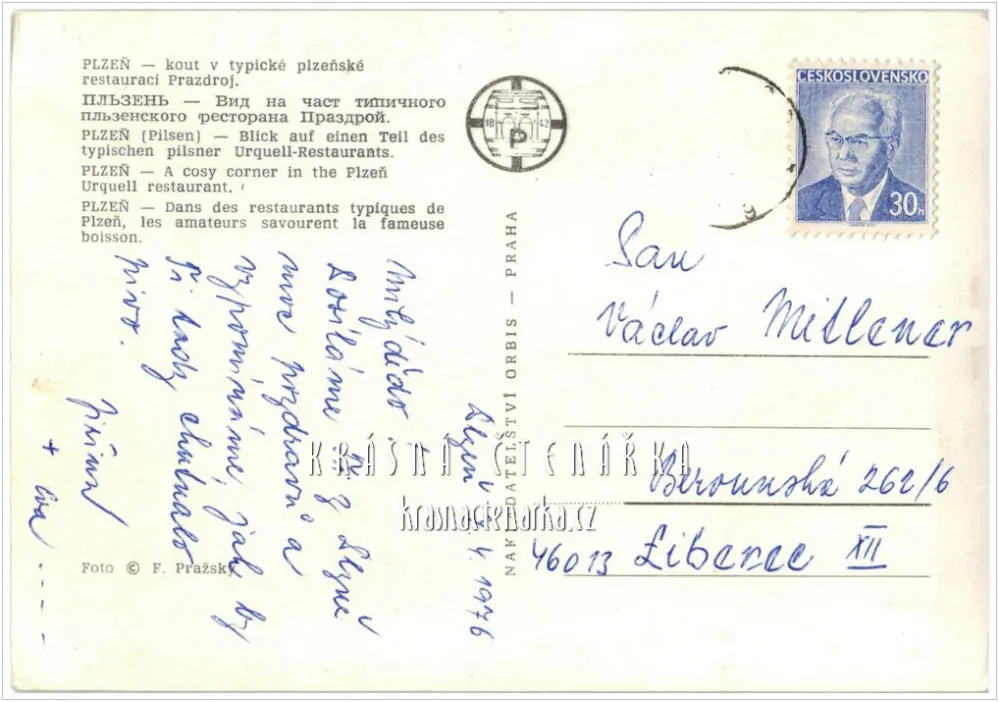 PLZEŇ — kout v typické plzeňské
restauraci Prazdroj.
ПЛЬЗЕНЬ — Вид на част типичного
пльзенского ресторана Праздрой.
PLZEŇ (Pilsen) — Blick auf einen Teil des
typischen pilsner Urquell-Restaurants.
PLZEŇ — A cosy corner in the Plzeň
Urquell restaurant.
PLZEŇ — Dans des restaurants typiques de
Plzeň, les amateurs savourent la fameuse
boisson.
18 42
P
ČESKOSLOVENSKO
30h
Plzeň 4. 1976
Milý dědo
Posíláme z Plzně
moc pozdravů a
vzpomínáme, jak by
Ti tady chutnalo
pivo.
Jiřina
+ Eva ....
NAKLADATELSTVÍ ORBIS — PRAHA
Pan
Václav Mitlener
Berounská 262/6
46013 Liberec XII
KRÁSNÁ ČTENÁŘKA
krasnactenarka.cz
Foto © F. Pražský